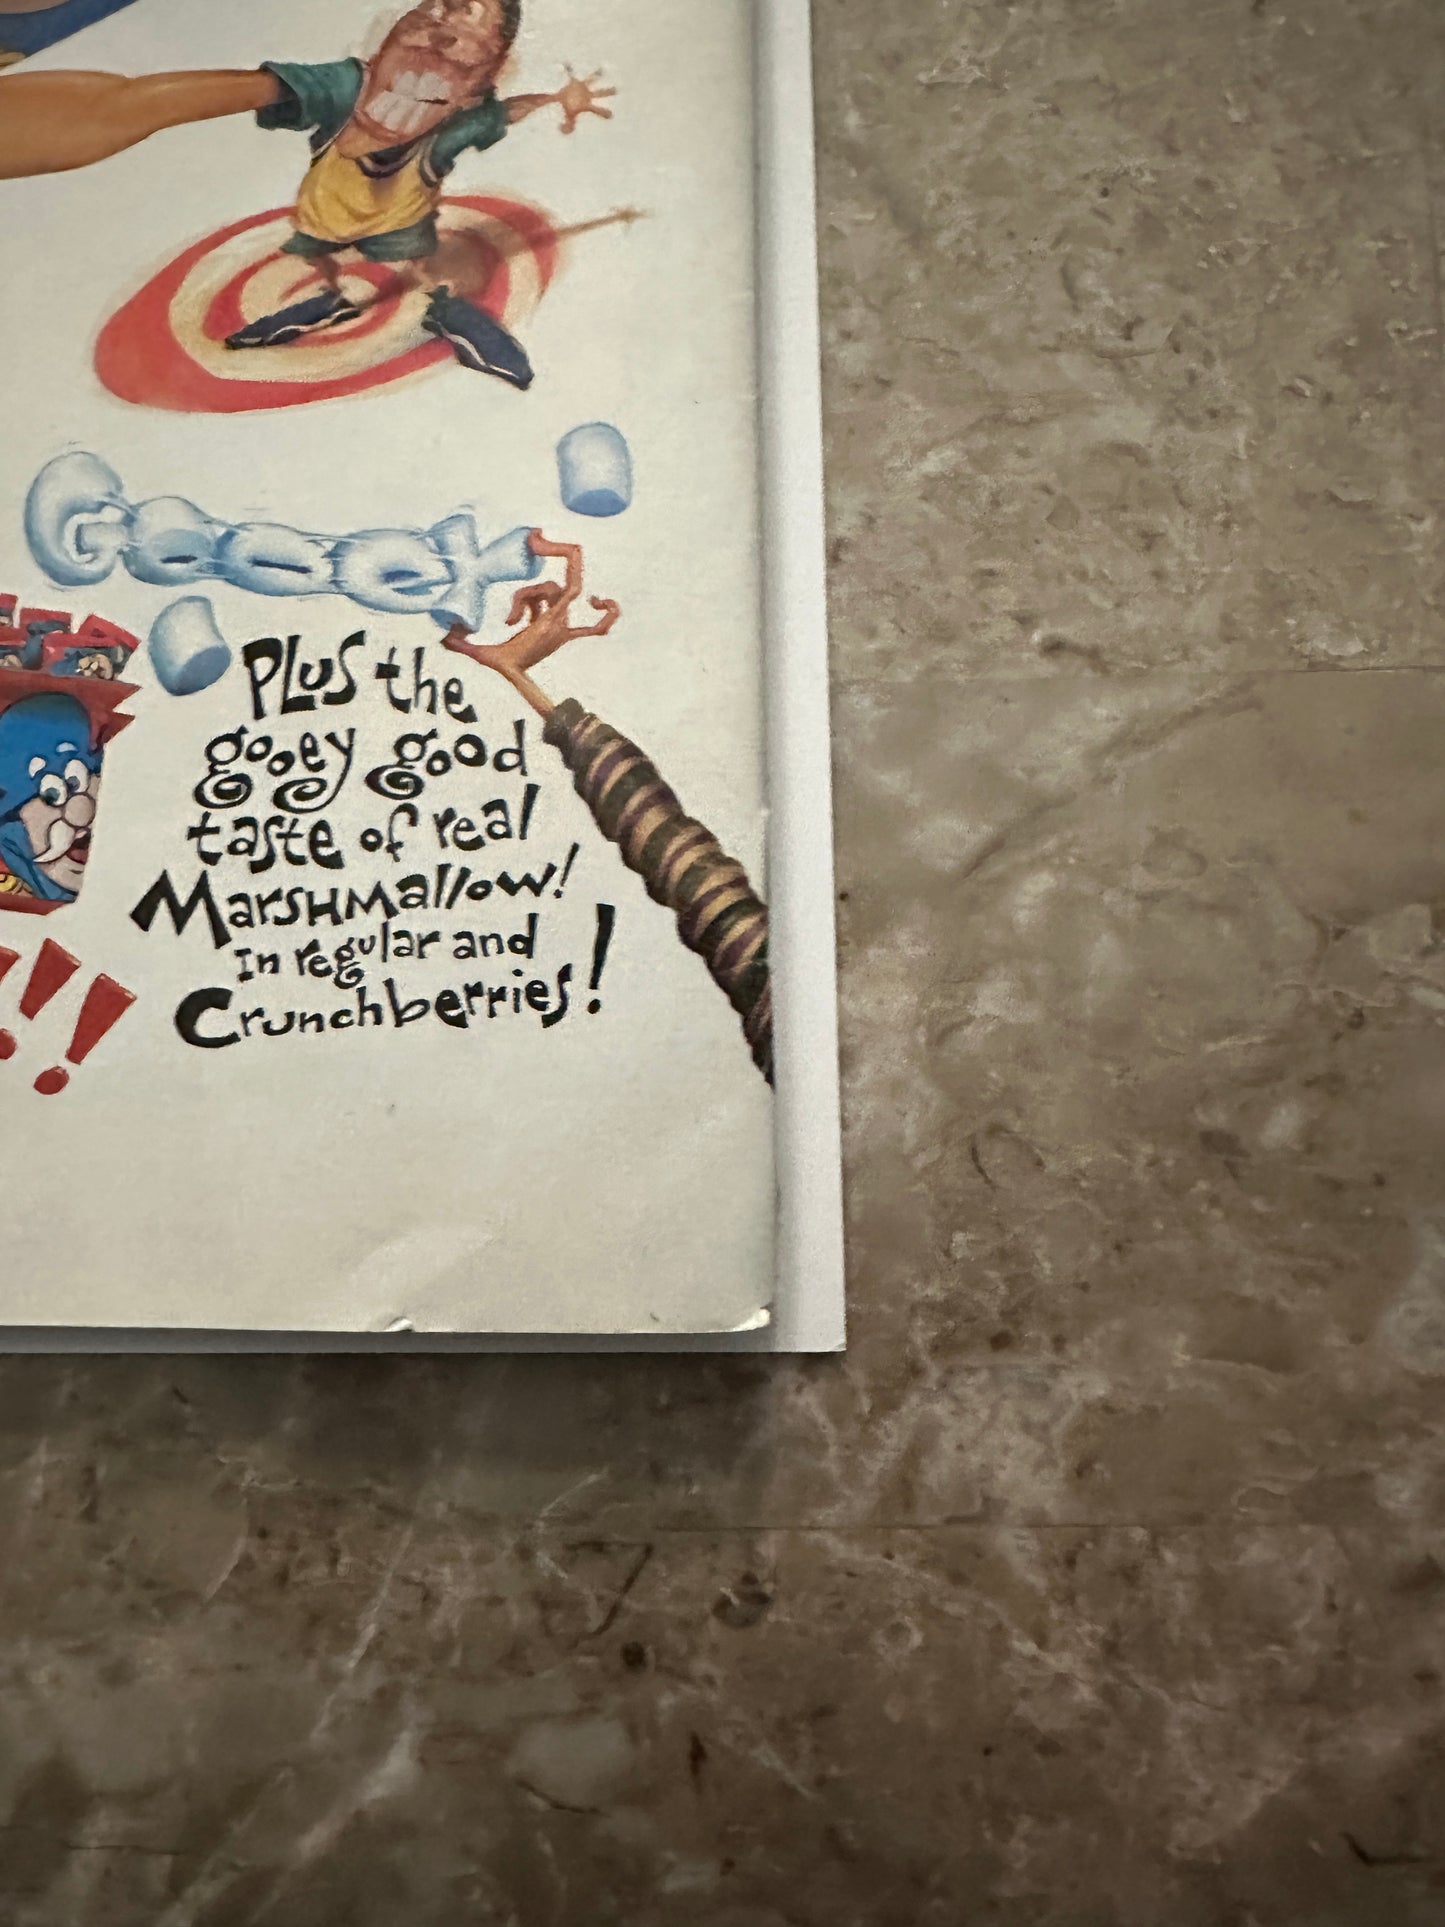 Plus the
gooey good
taste of real
Marshmallow!
In regular and
Crunchberries!
!!